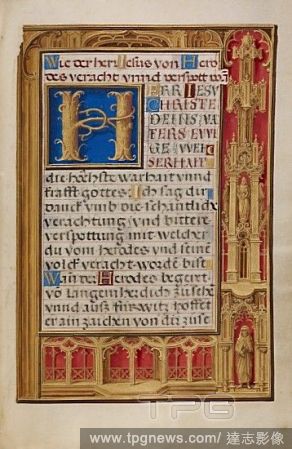 Wie der herr Jesus von Hero
des veracht vnnd verspott wā
H
ERR IESV
CHRISTE
DEINS VA
TERS EWI
GE WEI
SERHAIT
die höchste warhait vnnd
krafft gottes: Ich sag dir
danck vmb die schäntliche
verachtung vnd bittere
verspottung mit welcher
du vom herodes vnd seinē
volck veracht wordē bist
Wan der Herodes begert
vō langem herdich zu sehē
vnnd auß fürwitz hoffet
er ain zaichen von dir zuse
TPG
www.tpgnews.com/ 達志影像